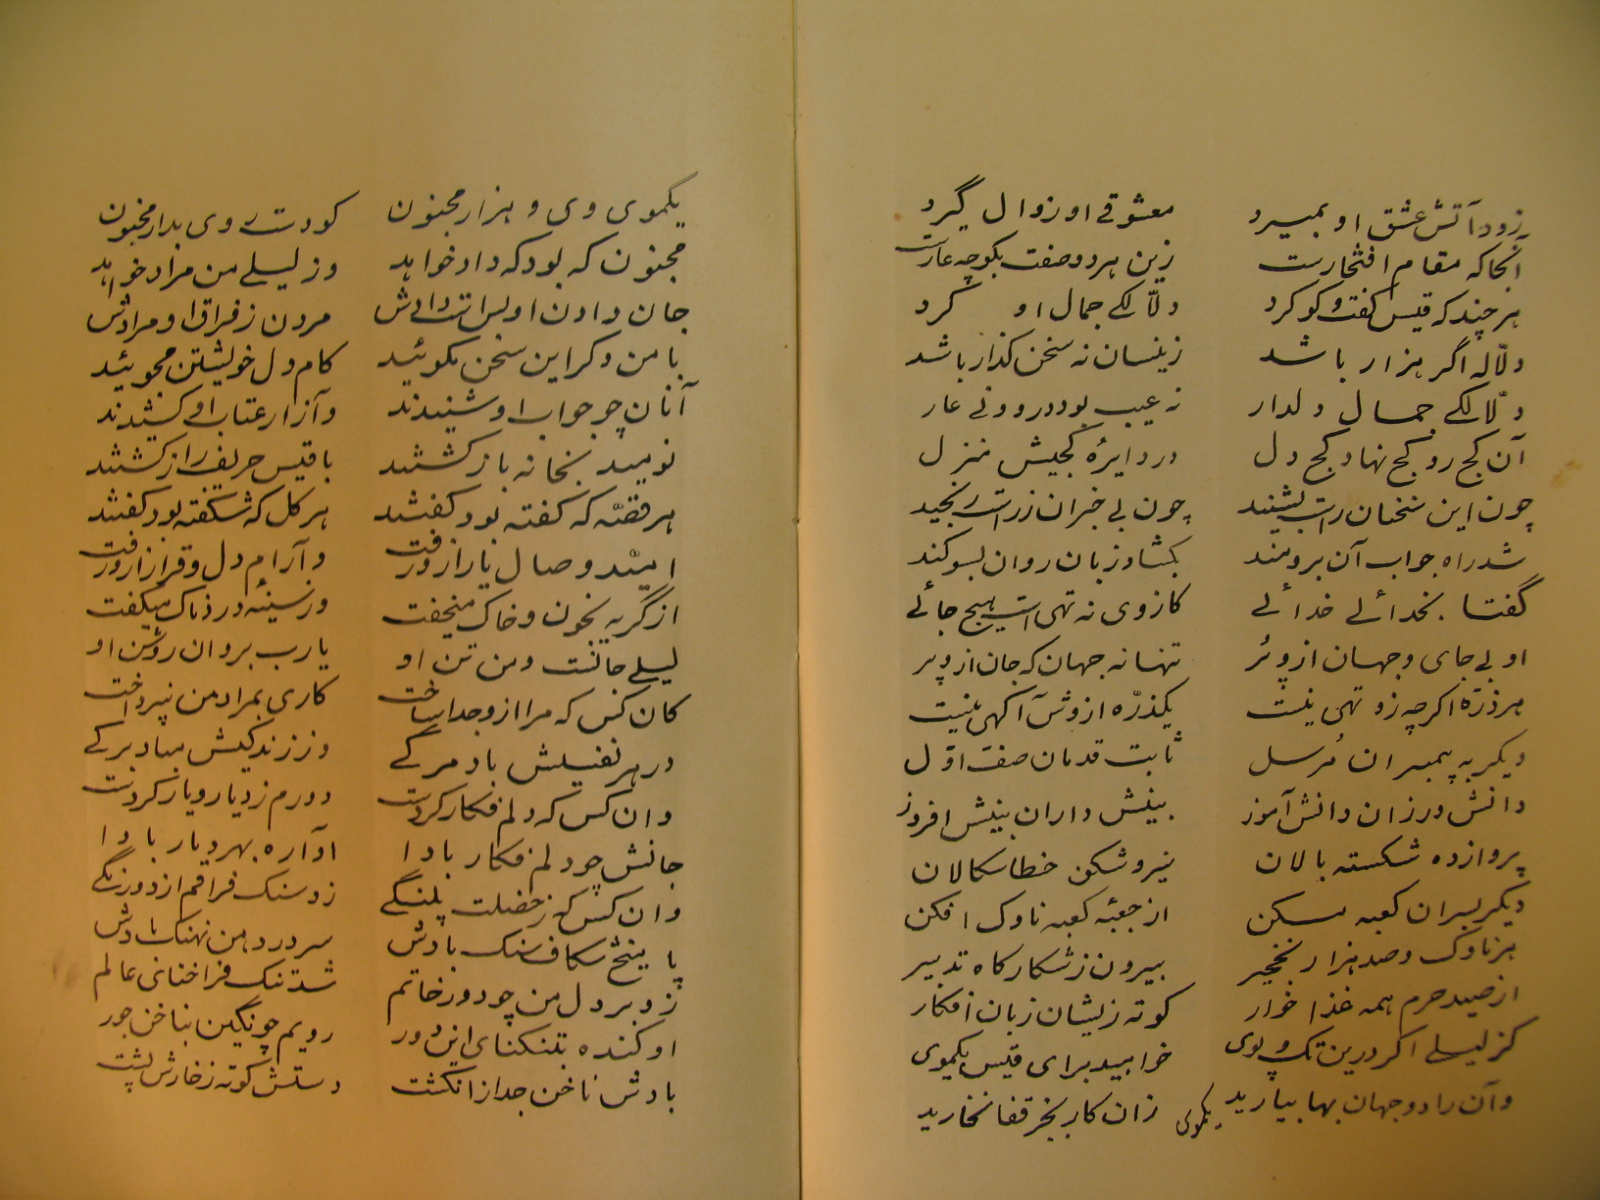 زود آتش عشق او بمیرد معشوقی او زوال گیرد
آنجا که مقام افتخارست زین هر دو صفت بکوچه عارست
هر چند که قیس گفت و گو کرد دلّالکی جمال او کرد
دلّاله اگر هزار باشد زینسان نه سخن گذار باشد
دلّالکی جمال دلدار نه عیب بود درو و نی عار
آن کج رو کج نهاد کج دل در دایرهٔ کجیش منزل
چون این سخنان راست بشنید چون بی خبران ز راست رنجید
شد راه جواب آن برومند بگشاد زبان روان بسوگند
گفتا بخدائی خدائی کز وی نه تهی است هیچ جائی
او بی جای و جهان ازو پُر تنها نه جهان که جان ازو پر
هر ذرّه اگر چه زو تهی نیست یکذرّه ازوش آگهی نیست
دیگر به پیمبران مُرسل ثابت قدمان صف اوّل
دانش ورزان دانش آموز بینش داران بینش افروز
پرواز ده شکسته بالان نیرو شکن خطا سکالان
دیگر بسران کعبه مسکن از جعبهٔ کعبه ناوک افکن
هر ناوک و صد هزار نخجیر بیرون ز شکارگاه تدبیر
از صید حرم همه غذا خوار کوته ز یشان زبان انکار
کز لیلی اگر درین تک و پوی خواهید برای قیس یکموی
و آن را دو جهان بها بیارید زان کار بجز قفا نخارید
یکموی
یکموی وی و هزار مجنون کو دست وی بدار مجنون
مجنون که بود که داد خواهد وز لیلی من مراد خواهد
جان دادن او بس است دادش مردن ز فراق او مرادش
با من دگر این سخن مگوئید کام دل خویشتن مجوئید
آنان چو جواب او شنیدند و آزار عتاب او کشیدند
نومید بخانه باز گشتند با قیس حریف راز گشتند
هر قصّه که گفته بود گفتند هر گل که شکفته بود گفتند
امّید وصال یار ازو رفت و آرام دل و قرار ازو رفت
از گریه بخون و خاک میخفت وز سینهٔ دردناک میگفت
لیلی جانست و من تن او یارب بروان روشن او
کان کس که مرا ازو جدا ساخت کاری بمراد من نپرداخت
در هر نفسیش باد مرگی وز زندگیش مباد برگی
وان کس که دلم فکار کردست دورم ز دیار و یار کردست
جانش چو دلم فکار بادا آواره بهر دیار بادا
وان کس که ز خصلت پلنگی زد سنگ فراقم از دو رنگی
پا میخ شکاف سنگ بادش سر در دهن نهنگ بادش
زد بر دل من چو دور خاتم شد تنگ فراخنای عالم
او کنده بتنگنای این دور رویم چو نگین بناخن جور
بادش ناخن جدا ز انگشت دستش کوته ز خارش پشت